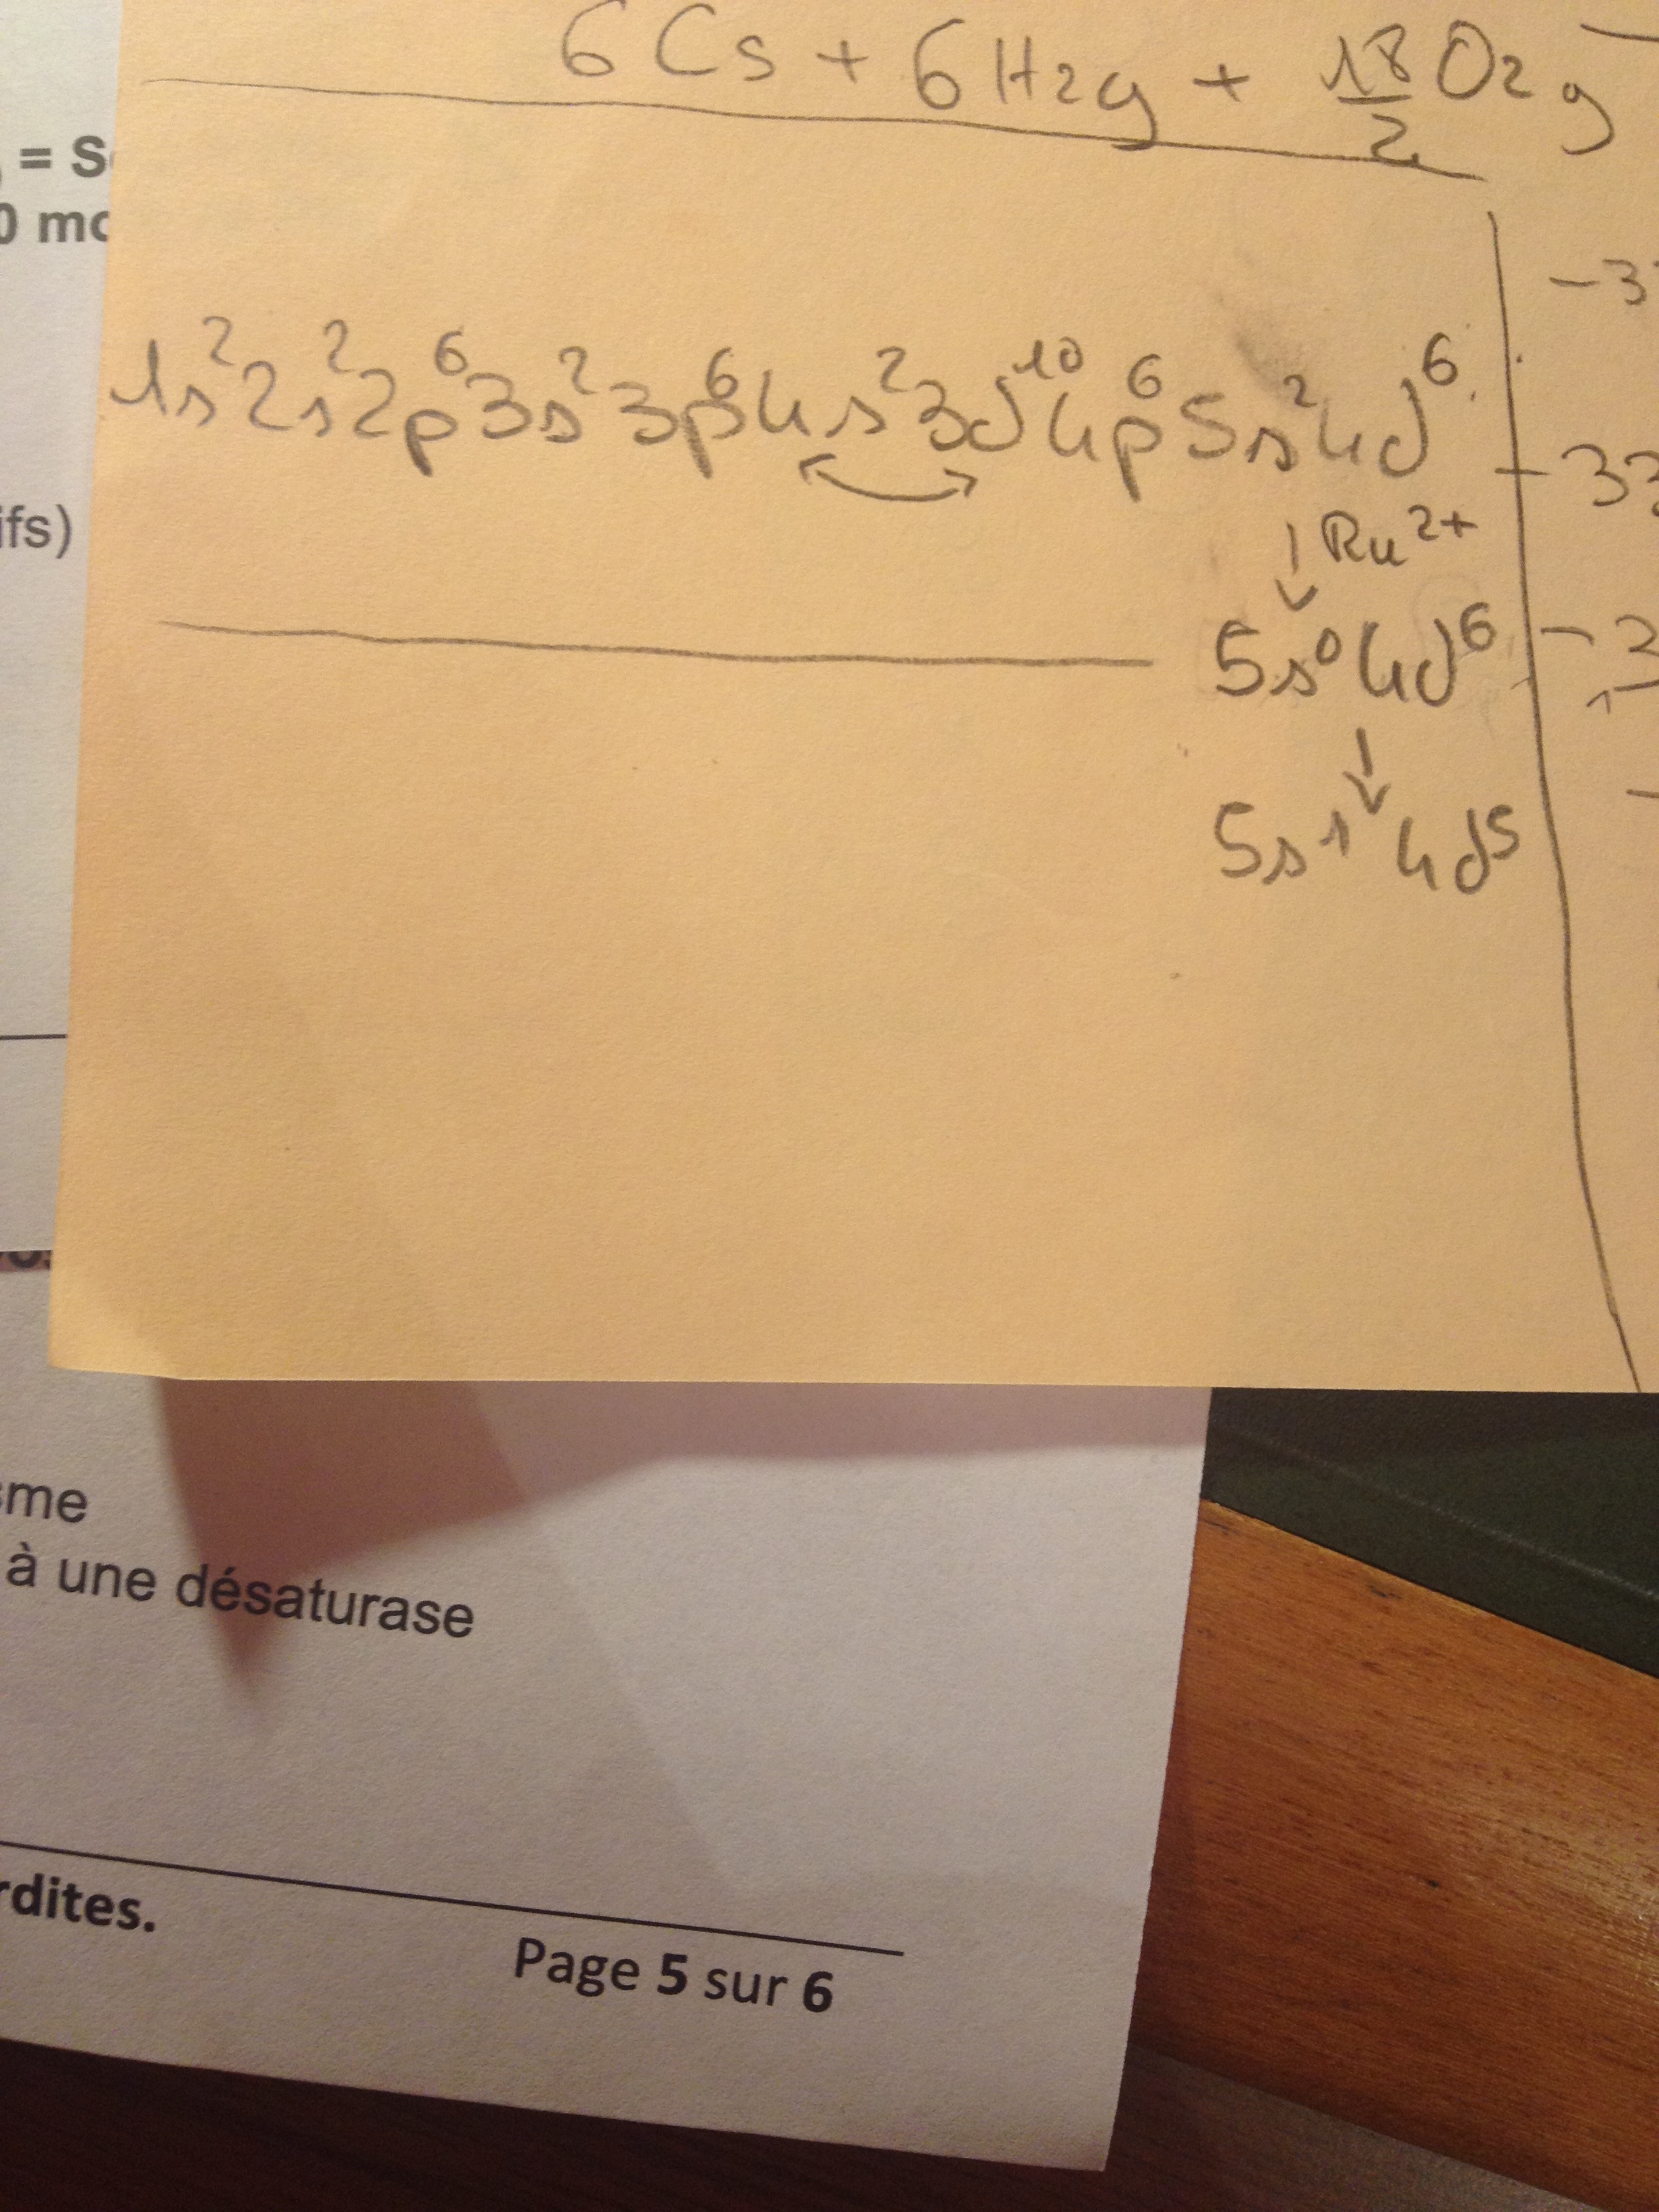 6 Cs + 6 H2g + 18/2 O2g
= S
0 mo
1s² 2s² 2p⁶ 3s² 3p⁶ 4s² 3d¹⁰ 4p⁶ 5s² 4d⁶
ifs)
↓ Ru²⁺
5s⁰ 4d⁶
↓
5s¹ 4d⁵
-3
-33
sme
à une désaturase
rdites.
Page 5 sur 6